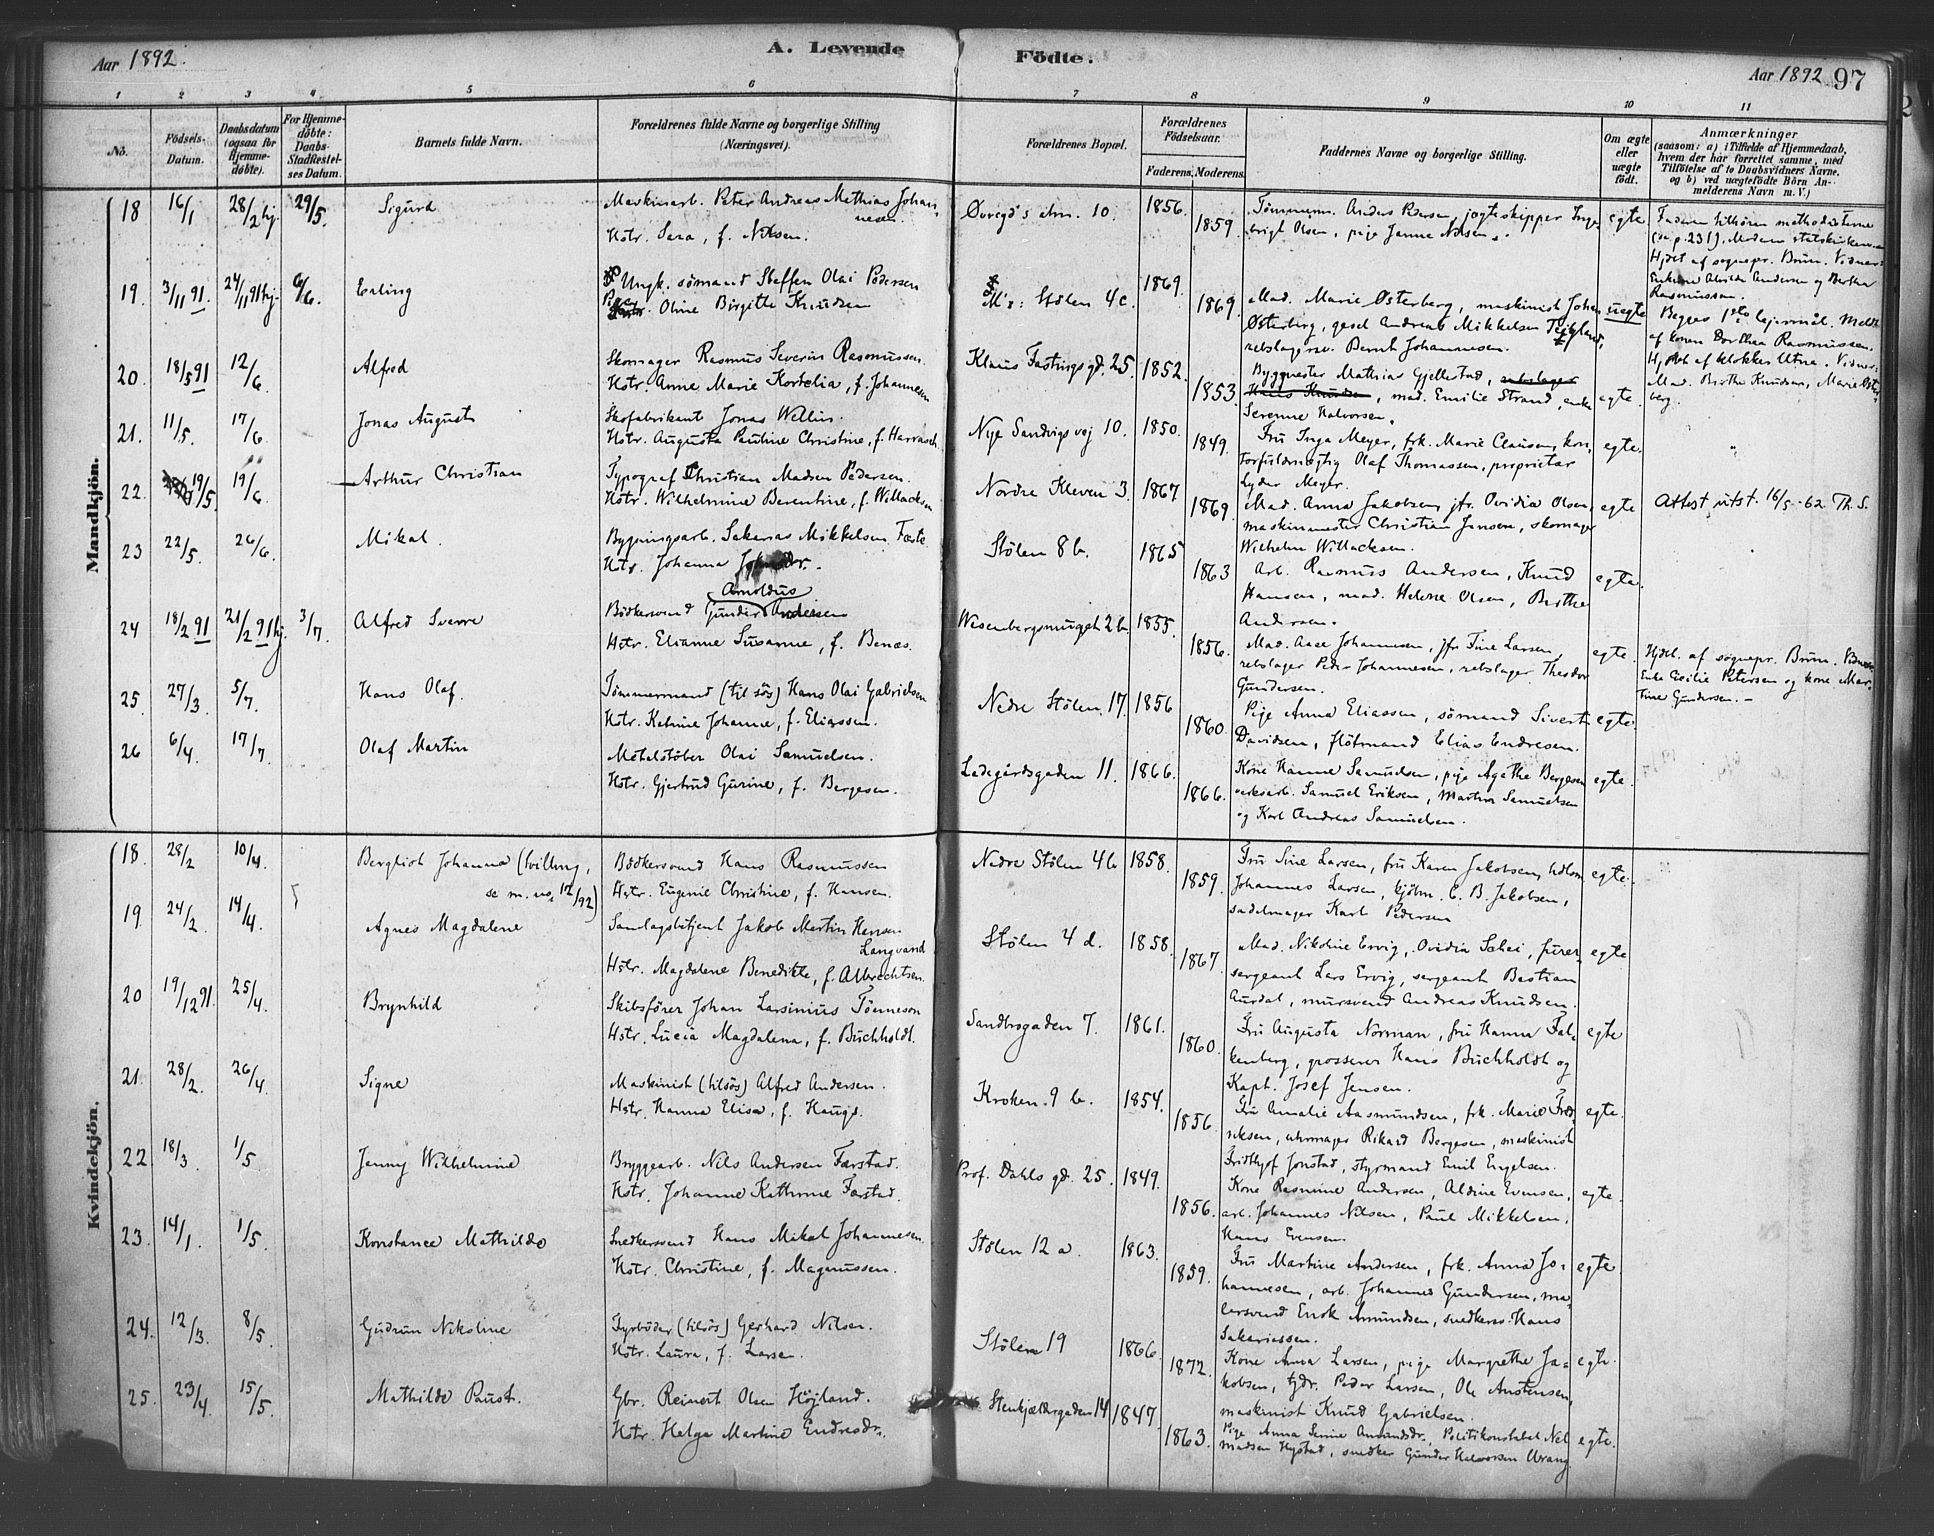 Aar 1892.
A. Levende
Födte.
Aar 1892
97
1 2 3 4 5 6 7 8 9 10 11
No.
Födsels-
Datum.
Daabsdatum
(ogsaa for
Hjemme-
döbte).
For Hjemme-
döbte:
Daabs-
Stadfæstel-
ses Datum.
Barnets fulde Navn.
Forældrenes fulde Navne og borgerlige Stilling
(Næringsvei).
Forældrenes Bopæl.
Forældrenes
Födselsaar.
Faderens. Moderens.
Faddernes Navne og borgerlige Stilling.
Om ægte
eller
uægte
födt.
Anmærkninger
(saasom: a) i Tilfælde af Hjemmedaab,
hvem der har forrettet samme, med
Tilföielse af to Daabsvidners Navne.
og b) ved uægtefödte Börn An-
melderens Navn m. V.)
Mandkjön.
18 16/1 28/2 hj. 29/5. Sigurd
Maskinarb. Peter Andreas Mathias Johan-
nesen.
Hstr. Sara, f. Nilsen.
Øvregd's alm. 10. 1856. 1859.
Tømmerm. Anders Pedersen, jagteskipper Inge-
brigt Olsen, pige Janna Nilsen.
egte.
Faderen tilhører methodisterne
(se p. 231), Moderen statskirken.
19. 3/11 91. 24/11 91 hj. 6/6. Erling
Ungk. sømand Steffen Olai Pedersen
Pige Oline Birgitte Knudsen
M's: Stølen 4c. 1869. 1869.
Mad. Marie Østerberg, maskinist Johan
Østerberg, gesel Andreas Mikkelsen
rebslagersv. Bernt Johannesen.
uegte
Hjdbt. af sognepr. Brun. Vidner:
Enkerne Alvilda Andersen og Berthe
Rasmussen.
Begges 1ste lejermål. Meldt
af konen Dorthea Rasmussen.
20. 18/5 91 12/6. Alfred
Skomager Rasmus Severin Rasmussen.
Hstr. Anne Marie Kortelia, f. Johannesen
Klaus Fastings gd. 25. 1852. 1853.
Byggmester Mathias Gjellestad, rebslager
Hans Knudsen, mad. Emilie Strand, enke
Serenne Halvorsen.
egte.
Hjdbt af klokker Utne. Vidner:
Mad. Birthe Knudsen, Marie Øster-
berg.
21. 11/5. 17/6. Jonas August
Skofabrikant Jonas Wellin.
Hstr. Augusta Pauline Christine, f. Harrasch.
Nye Sandvigsvej 10. 1850. 1849.
Fru Inga Meyer, frk. Marie Clausen, kon-
torfuldmægtig Olaf Thomassen, proprietær
Lyder Meyer.
egte.
22 19/5. 19/6. Arthur Christian
Typograf Christian Madsen Pedersen.
Hstr. Wilhelmine Berentine, f. Willacksen
Nordre Kleven 3. 1867 1869.
Mad. Anna Jakobsen, jfr. Ovidia Olsen,
maskinmester Christian Jensen, skomager
Wilhelm Willacksen.
egte
Attest utst. 16/5-62 Th. S.
23 22/5. 26/6. Mikal.
Bygningsarb. Sakarias Mikkelsen Færste.
Hstr. Johanna
Stølen 8b. 1865 1863
Arb. Rasmus Andersen, Knud
Hansen, mad. Helene Olsen, Berthe
Andersen.
egte.
24 18/2 91 21/2 91 hj. 3/7. Alfred Sverre
Arnoldus
Bödkersvend Gunder Andersen
Hstr. Elianne Susanne, f. Benæs.
Wesenbergsmuget 2b. 1855. 1856.
Mad. Aase Johannesen, jfr Tine Larsen,
rebslager Peder Johannesen, rebslager Theodor
Gundersen.
egte.
Hjdbt. af sognepr. Brun. Vidner:
Enke Cecilie Petersen og kone Mar-
tine Gundersen. -
25. 27/3. 5/7. Hans Olaf.
Tömmermand (til søs) Hans Olai Gabrielsen
Hstr. Katrine Johanne, f. Eliassen.
Nedre Stølen 17. 1856 1860.
Pige Anna Eliassen, sømand Sivert
Davidsen, flötmand Elias Endresen.
egte.
26 6/4. 17/7. Olaf Martin
Metalstøber Olai Samuelsen.
Hstr. Gjertrud Gurine, f. Bergesen.
Ladegårdsgaden 11. 1866. 1866.
Kone Hanne Samuelsen, pige Agathe Bergesen
verksarb. Samuel Eriksen, Martin Samuelsen
og Karl Andreas Samuelsen.
egte.
Kvindekjön.
18. 28/2 10/4. Bergliot Johanna (tvilling,
se m. no. 12/92)
Bödkersvend Hans Rasmussen
Hstr. Eugenie Christine, f. Hansen.
Nedre Stølen 4b 1858. 1859.
Fru Sine Larsen, fru Karen Jakobsen,
Johannes Larsen, kjøbm. C. B. Jakobsen,
sadelmager Karl Pedersen
egte.
19. 24/2. 14/4. Agnes Magdalene
Samlagsbetjent Jakob Martin Hansen
Langvand
Hstr. Magdalene Benedikte, f. Albrechtsen.
Stølen 4 d. 1858. 1867.
Mad. Nikoline Ervig, Ovidia furer-
sergeant Lars Ervig, sergeant Bastian
Aurdal, mursvend Andreas Knudsen.
egte
20 19/12 91. 25/4. Brynhild
Skibsfører Johan Larsinius Tönneson
Hstr. Lucia Magdalena, f. Buchholdt.
Sandbrogaden 7. 1861. 1860.
Fru Augusta Norman, fru Hanna Fal-
kenberg, grosserer Hans Buchholdt og
Kapt. Josef Jensen.
egte
21. 28/2. 26/4. Signe
Maskinist (tilsös) Alfred Andersen.
Hstr. Hanna Elisa, f. Haugs.
Kroken 9 b. 1854. 1856.
Fru Amalie Aasmundsen, frk. Marie Fred-
riksen, uhrmager Rikard Bergesen, maskinist
Fridthjof Jonstad, styrmand Emil Engelsen.
egte.
22. 18/3. 1/5 Jenny Wilhelmine
Bryggearb. Nils Andersen Farstad.
Hstr. Johanne Kathrine Farstad.
Prof. Dahls gd. 25. 1849. 1856.
Kone Rasmine Andersen, Aldine Evensen,
arb. Johannes Nilsen, Paul Mikkelsen,
Hans Evensen.
egte.
23. 14/1. 1/5. Konstance Mathilde
Snedkersvend Hans Mikal Johannesen.
Hstr. Christine, f. Magnussen.
Stølen 12 a. 1863. 1859.
Fru Martine Andersen, frk. Anna Jo-
hannesen, arb. Johannes Gundersen, ma-
lersvend Enok Amundsen, snedkersv. Hans
Sakariassen.
egte.
24. 12/3. 8/5. Gudrun Nikoline
Fyrböder (tilsös) Gerhard Nilsen.
Hstr. Laura, f. Larsen.
Stølen 19 1866. 1872.
Kone Anna Larsen, pige Margrethe Ja-
kobsen, tjdr. Peder Larsen, Ole Austensen,
maskinist Knud Gabrielsen.
egte.
25. 23/4. 15/5. Mathilde Paust.
Gbr. Reinert Olsen Höjland.
Hstr. Helga Martine Endresdr.
Stenkjældergaden 14 1847. 1863.
Pige Anna Serine Amundsdr., Politikonstabel Nel
Madsen Hystad, snedker Gunder Halvorsen Urang.
egte.